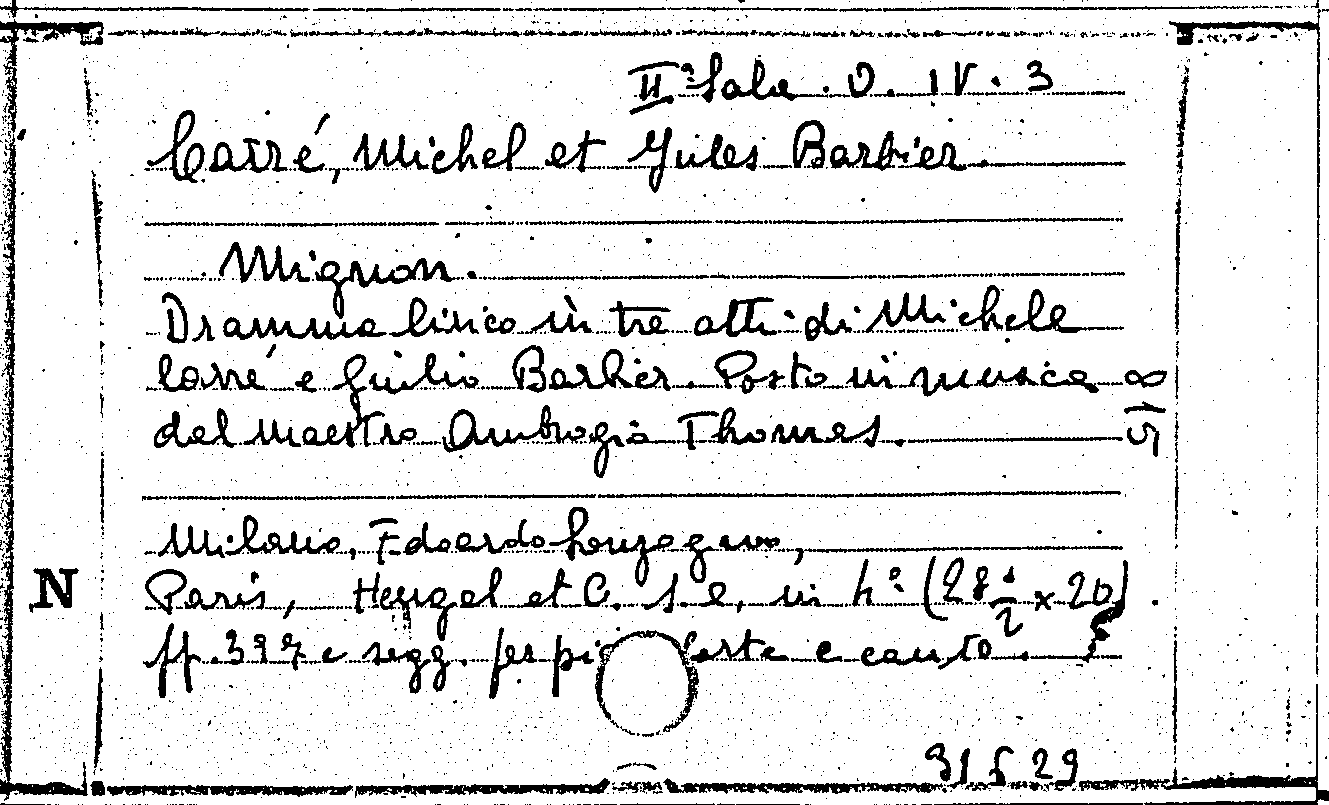 IIª Sala. O. IV. 3
Carré, Michel et Jules Barbier.
Mignon.
Dramma lirico in tre atti di Michele
Carré e Giulio Barbier. Posto in musica
dal maestro Ambrogio Thomas.
Milano, Edoardo Sonzogno,
N
Paris, Heugel et C. s.e, in 4º (28 1/2 x 20).
pp. 397 e segg. per pianoforte e canto.